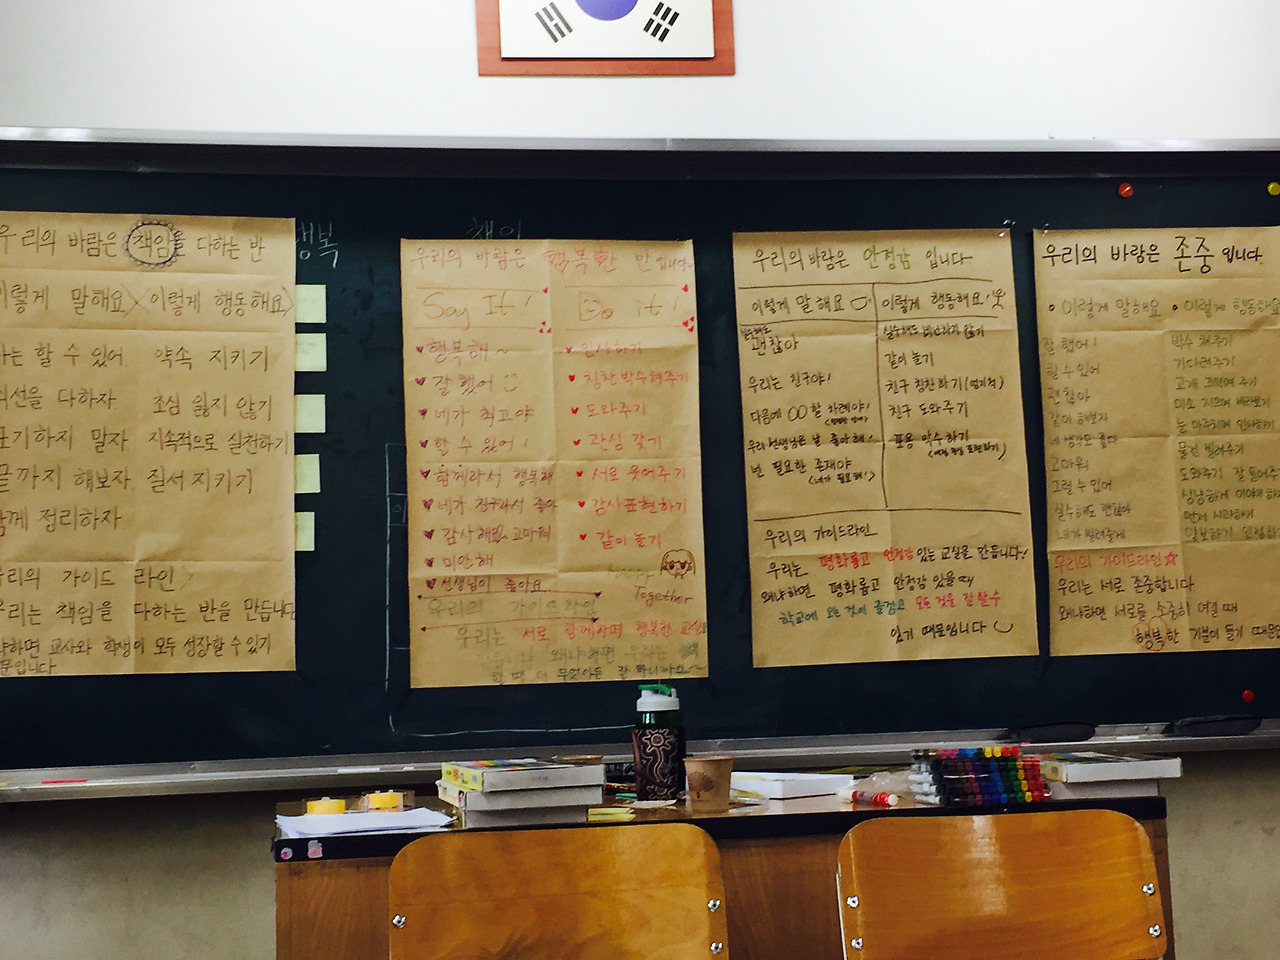 우리의 바람은 책임을 다하는 반
이렇게 말해요 이렇게 행동해요
나는 할 수 있어 약속 지키기
최선을 다하자 조심 잃지 않기
포기하지 말자 지속적으로 실천하기
끝까지 해보자 질서 지키기
함께 정리하자
우리의 가이드 라인
우리는 책임을 다하는 반을 만듭니다
왜냐하면 교사와 학생이 모두 성장할 수 있기
때문입니다
행복
책임
우리의 바람은 행복한 반 입니다.
Say It! Do it!
행복해~ 인사하기
잘했어 칭찬박수해주기
네가 최고야 도와주기
할 수 있어! 관심 갖기
함께라서 행복해 서로 웃어주기
네가 친구라서 좋아 감사표현하기
감사해요 고마워 같이 놀기
미안해
선생님이 좋아요
Happy Together
우리의 가이드라인
우리는 서로 함께하며 행복한 교실을
왜냐하면 우리는 행복
할 때 더 무엇이든 잘 하니까요~
우리의 바람은 안정감 입니다
이렇게 말해요 이렇게 행동해요!
실수해도 괜찮아 실수해도 비난하지 않기
같이 놀기
우리는 친구야! 친구 칭찬하기(엄지척)
다음에 OO할 차례야! 친구 도와주기
우리 선생님은 날 좋아해! 포옹 악수하기
넌 필요한 존재야
(네가 필요해!)
우리의 가이드라인
우리는 평화롭고 안정감 있는 교실을 만듭니다!
왜냐하면 평화롭고 안정감 있을 때
학교에 오는 것이 즐겁고 모든 것을 잘할 수
있기 때문입니다
우리의 바람은 존중 입니다.
이렇게 말해요 이렇게 행동해요
잘했어! 박수 쳐주기
할 수 있어 기다려주기
괜찮아 고개 끄덕여 주기
같이 해보자 미소 지으며 바라보기
네 생각도 좋다 눈 마주치며 인사하기
고마워 물건 빌려주기
그럴 수 있어 도와주기 잘 들어주기
실수해도 괜찮아 상냥하게 이야기하기
내가 빌려줄게 먼저 사과하기
우리의 가이드라인
우리는 서로 존중합니다
왜냐하면 서로를 소중히 여길 때
행복한 기분이 들기 때문입니다